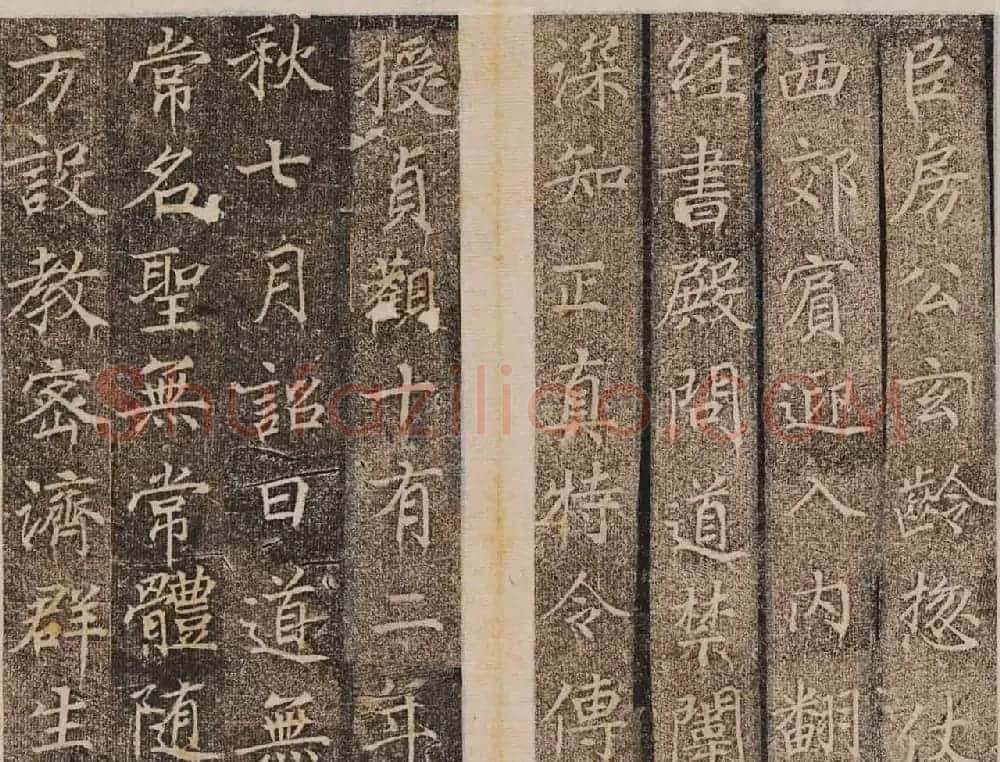 臣房公玄齡惣仗
西郊賔迎入內翻
經書殿問道禁闈
深知正真特令傳
授貞觀十有二年
秋七月詔曰道無
常名聖無常體随
方設教密濟群生
shufaziliao.com